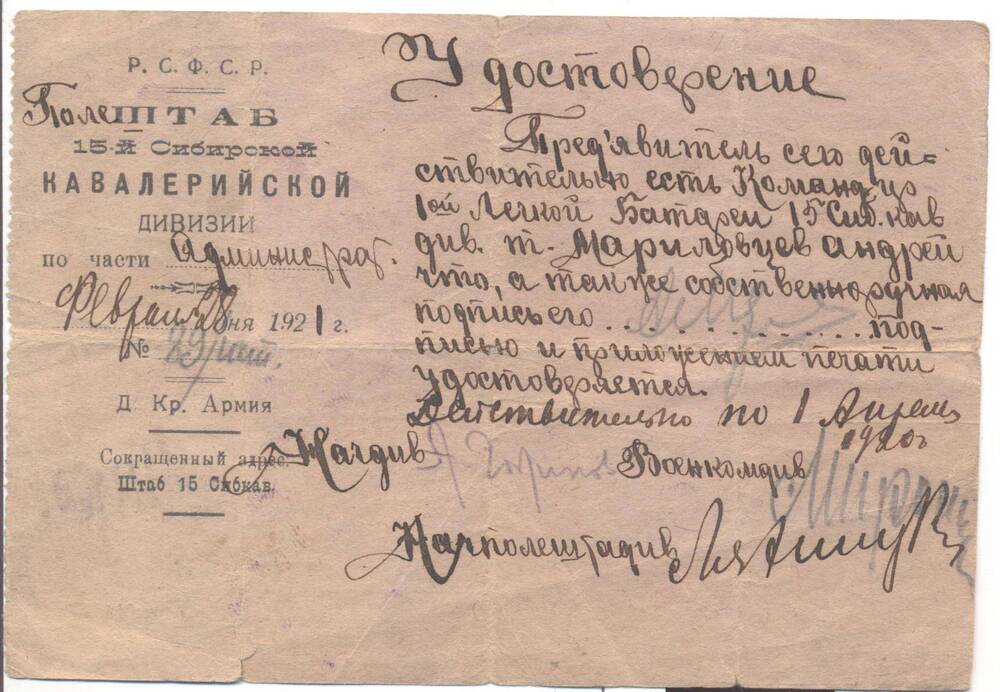 Р. С. Ф. С. Р.
ПолеШТАБ
15-й Сибирской
КАВАЛЕРИЙСКОЙ
ДИВИЗИИ
по части Администрат.
Февраля 28 дня 1921 г.
№ 29/
Д. Кр. Армия
Сокращенный адрес:
Штаб 15 Сибкав.
Удостоверение
Пред'явитель сего дей=
ствительно есть Командир
1ой Легкой Батареи 15 Сиб. кав
див. т. Мариловцев Андрей
что, а также собственноручная
подпись его . . . . . . . . . . . . . под-
писью и приложением печати
удостоверяется.
Действительно по 1 Апреля
1920г
Начдив Военкомдив
Начполештадив